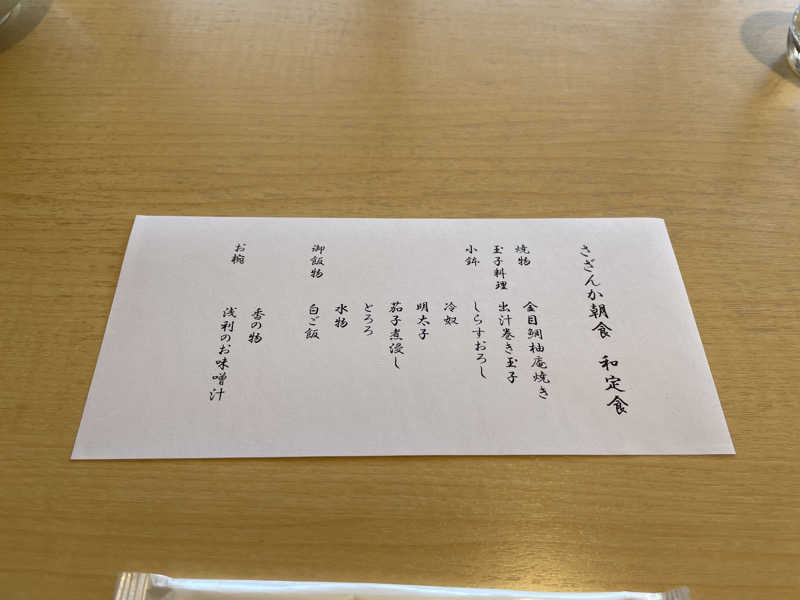 さざんか朝食　和定食
焼物　金目鯛柚庵焼き
玉子料理　出汁巻き玉子
小鉢　しらすおろし
冷奴
明太子
茄子煮浸し
とろろ
水物
御飯物　白ご飯
香の物
お椀　浅利のお味噌汁